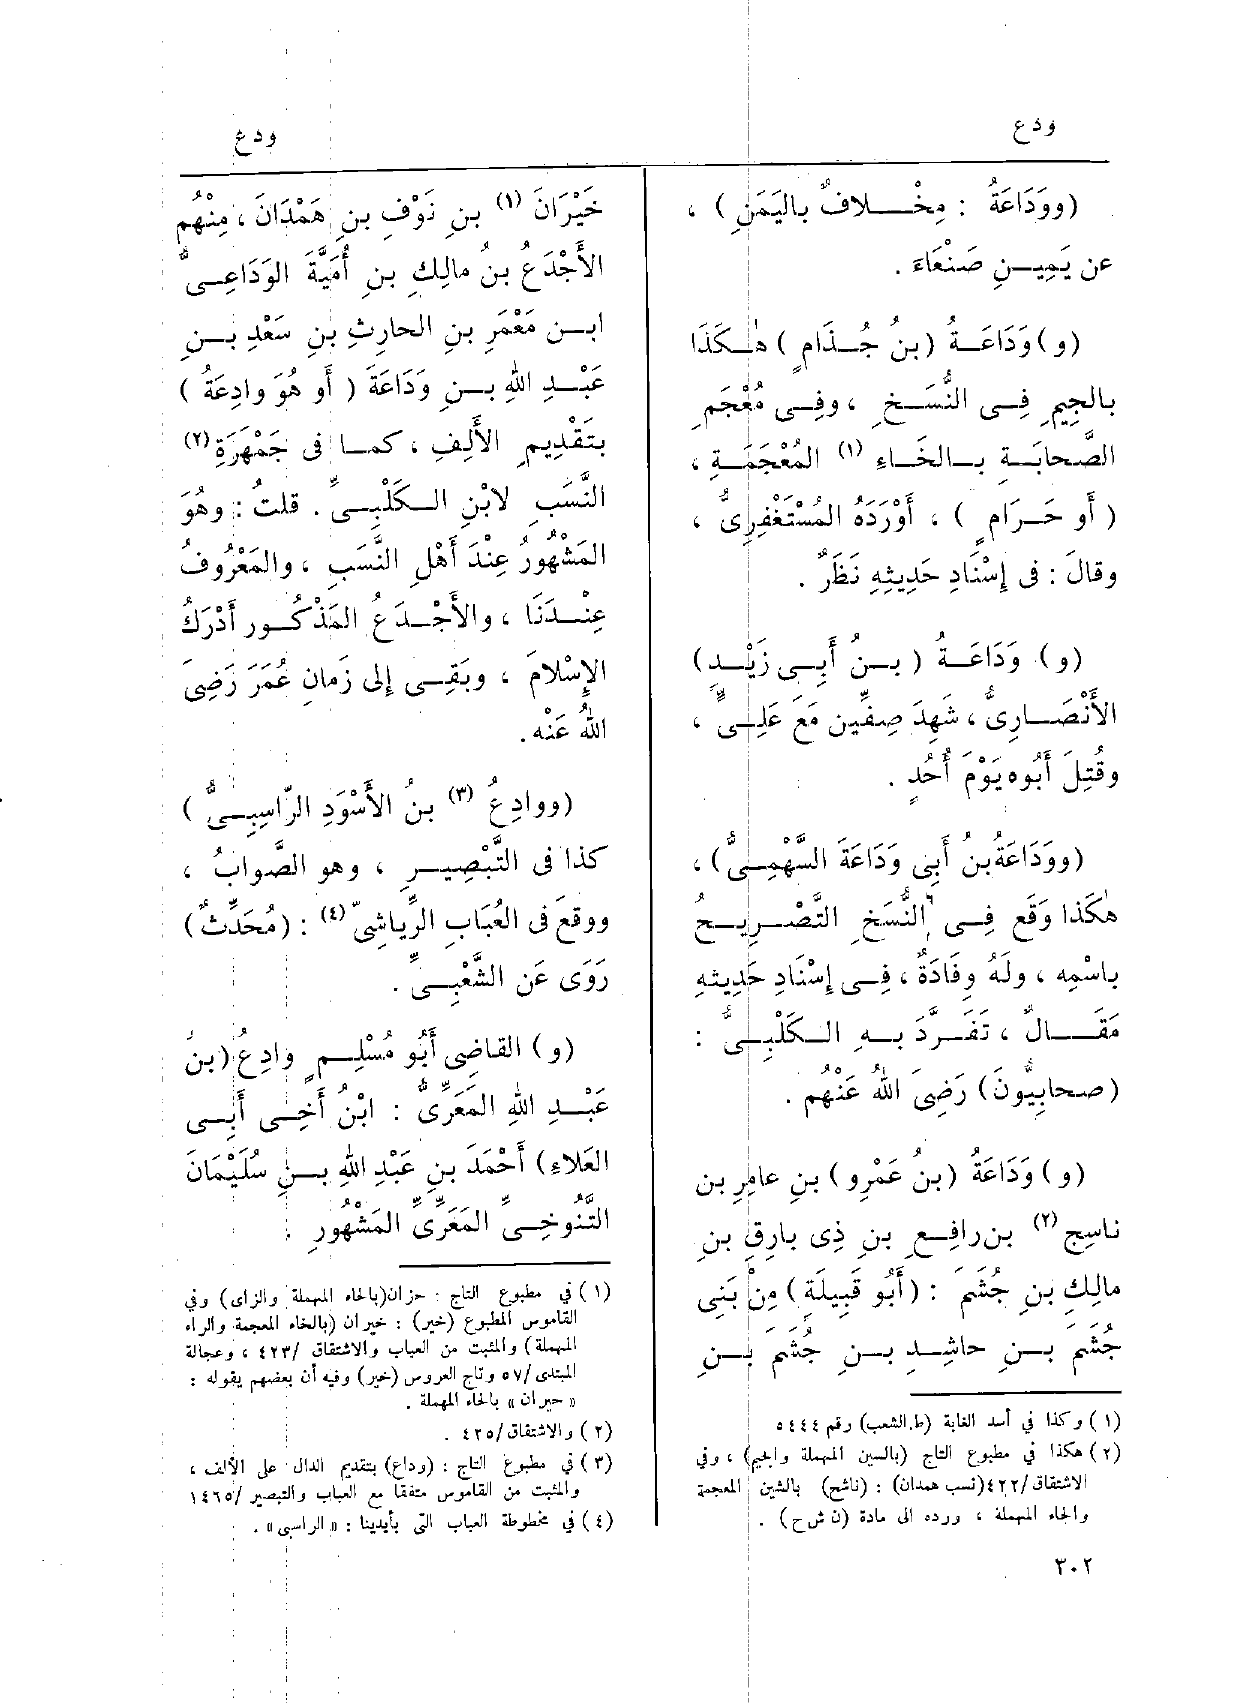 ودع
(ووَدَاعَةُ : مِخْـلافٌ باليَمَنِ) ،
عن يَمِيـنِ صَنْعَاءَ .
(و) وَدَاعَـةُ (بنُ جُـذَامٍ) هٰـكَذَا
بالجِيمِ فِـى النُّسَـخِ ، وفِـى مُعْجَمِ
الصَّحابَـةِ بـالخَـاءِ (١) المُعْجَمَـةِ ،
(أو حَـرَامٍ ) ، أَوْرَدَهُ المُسْتَغْفِرِىُّ ،
وقالَ : فى إِسْنَادِ حَدِيثِهِ نَظَرٌ .
(و) وَدَاعَـةُ ( بـنُ أَبِـى زَيْـدٍ)
الأَنْصَـارِىُّ ، شَهِدَ صِفِّين مَعَ عَلِـىٍّ ،
وقُتِلَ أَبُوه يَوْمَ أُحُدٍ .
(ووَدَاعَةُ بنُ أَبِى وَدَاعَةَ السَّهْمِـىُّ) ،
هٰكَذا وَقَع فِـى النُّسَخِ التَّصْـرِيـحُ
باسْمِه ، ولَهُ وِفَادَةٌ ، فِـى إِسْنَادِ حَدِيثِهِ
مَقَـالٌ ، تَفَـرَّدَ بـهِ الـكَلْبِـىُّ :
(صحابِيُّونَ) رَضِىَ اللهُ عَنْهُم .
(و) وَدَاعَةُ (بنُ عَمْرٍو) بنِ عامِرِ بن
ناسِج (٢) بن رافِـعِ بنِ ذِى بارِقِ بنِ
مالِكِ بنِ جُشَمَ : (أَبُو قَبِيلَةٍ) مِنْ بَنِى
جُشَمَ بـنِ حاشِـدِ بـنِ جُشَمَ بـنِ
(١) وكذا في أسد الغابة (ط.الشعب) رقم ٥٤٤٤
(٢) هكذا في مطبوع التاج (بالسين المهملة والجيم) ، وفي
الاشتقاق/٤٢٢(نسب همدان) : (ناشح) بالشين المعجمة
والحاء المهملة ، ورده الى مادة (ن ش ح) .
٣٠٢
ودع
خَيْرَانَ (١) بنِ نَوْفِ بنِ هَمْدَانَ ، مِنْهُم
الأَجْدَعُ بنُ مالِكِ بنِ أُمَيَّةَ الوَدَاعِـىُّ
ابـن مَعْمَرِ بنِ الحارِثِ بنِ سَعْدِ بـنِ
عَبْـدِ اللهِ بـنِ وَدَاعَةَ ( أو هُوَ وادِعَةُ )
بتَقْدِيمِ الأَلِفِ ، كمـا فى جَمْهَرَةِ (٢)
النَّسَبِ لابْنِ الـكَلْبِـىِّ . قلتُ : وهُوَ
المَشْهُورُ عِنْدَ أَهْلِ النَّسَبِ ، والمَعْرُوفُ
عِنْـدَنَا ، والأَجْـدَعُ المَذْكُـور أَدْرَكَ
الإِسْلامَ ، وبَقِـى إِلى زَمانِ عُمَرَ رَضِىَ
اللهُ عَنْه .
(ووادِعُ (٣) بنُ الأَسْوَدِ الرّاسِبِـىُّ )
كذا فى التَّبْصِيـرِ ، وهو الصَّوابُ ،
ووقعَ فى العُبَابِ الرِّياشِىّ (٤) : (مُحَدِّثٌ)
رَوَى عَن الشَّعْبِـىِّ .
(و) القاضِى أَبُو مُسْلِـمٍ وادِعُ (بنُ
عَبْـدِ اللهِ المَعَرِّىُّ : ابْنُ أَخِـى أَبِـى
العَلاءِ) أَحْمَدَ بنِ عَبْدِ اللهِ بـنِ سُلَيْمَانَ
التَّنُوخِـىِّ المَعَرِّىِّ المَشْهُورِ :
(١) في مطبوع التاج : حزان(بالحاء المهملة والزاى) وفي
القاموس المطبوع (خير) : خيران (بالخاء المعجمة والراء
المهملة) والمثبت من العباب والاشتقاق /٤٢٣ ، وعجالة
المبتدى/٥٧ وتاج العروس (خير) وفيه أن بعضهم يقوله :
« حيران » بالحاء المهملة .
(٢) والاشتقاق/٤٢٥ .
(٣) في مطبوع التاج : (وداع) بتقديم الدال على الألف ،
والمثبت من القاموس متفقا مع العباب والتبصير /١٤٦٥
(٤) في مخطوطة العباب التى بأيدينا : « الراسبى » .